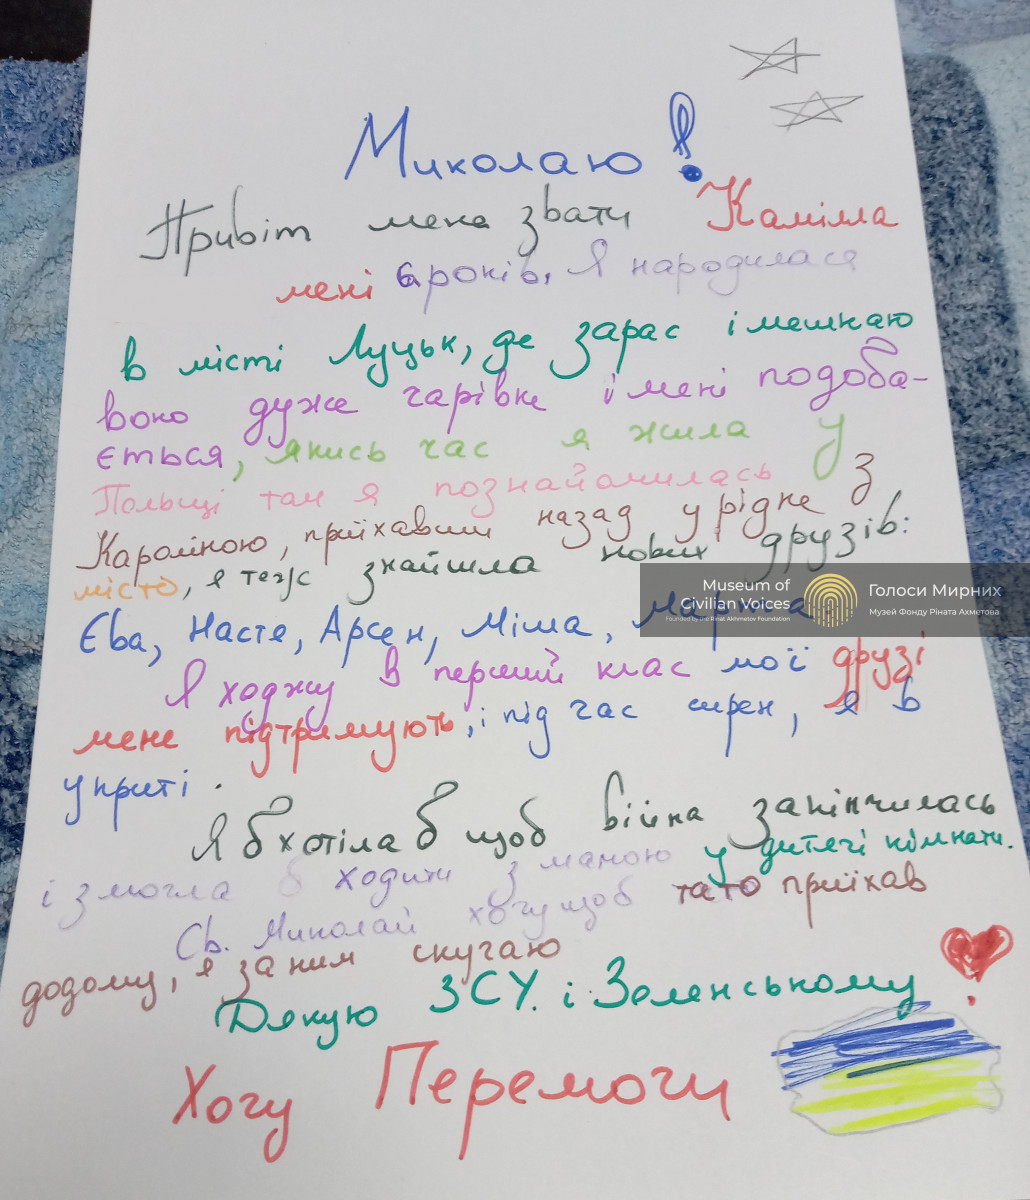 Миколаю!
Привіт мене звати Каміла
мені 6 років, Я народилася
в місті Луцьк, де зарас і мешкаю
воно дуже чарівне і мені подоба-
ється, якись час я жила у
Польщі там я познайомилась з
Кароліною, приїхавши назад у рідне
місто, я теж знайшла нових друзів:
Єва, Настя, Арсен, Міла, Марта.
Я ходжу в перший клас мої друзі
мене підтримують, і під час сирен, я в
укриті.
Я б хотіла б щоб війна закінчилась
і змогла б ходити з мамою у дитячі кімнати.
Св. Миколай хочу щоб тато приїхав
додому, я за ним скучаю
Дякую ЗСУ. і Зеленському
Хочу Перемоги
Museum of
Civilian Voices
Founded by the Rinat Akhmetov Foundation
Голоси Мирних
Музей Фонду Ріната Ахметова